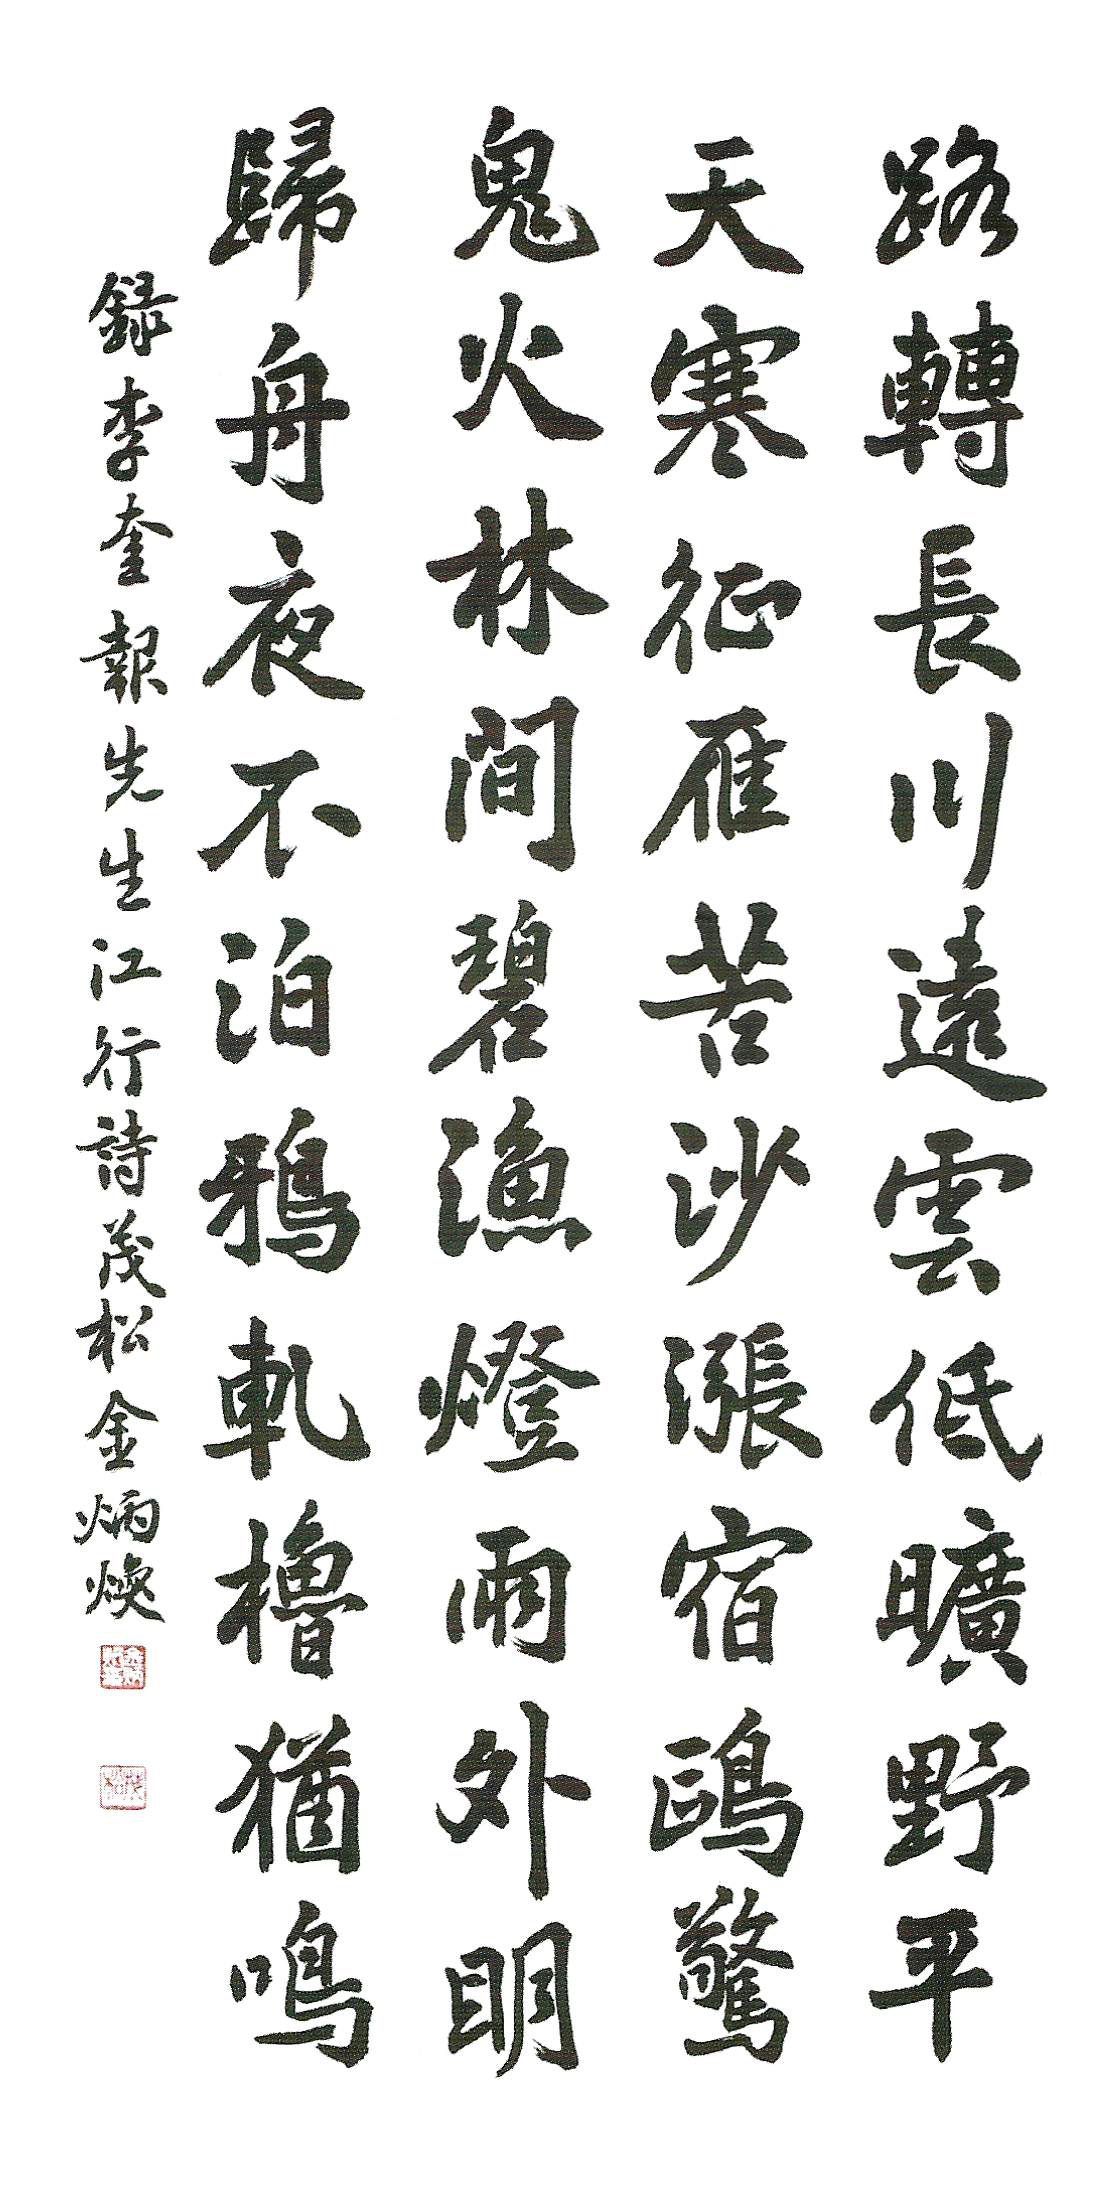 路轉長川遠雲低曠野平
天寒征雁苦沙漲宿鷗驚
鬼火林間碧漁燈雨外明
歸舟夜不泊鴉軋櫓猶鳴
錄李奎報先生江行詩茂松金炳煥